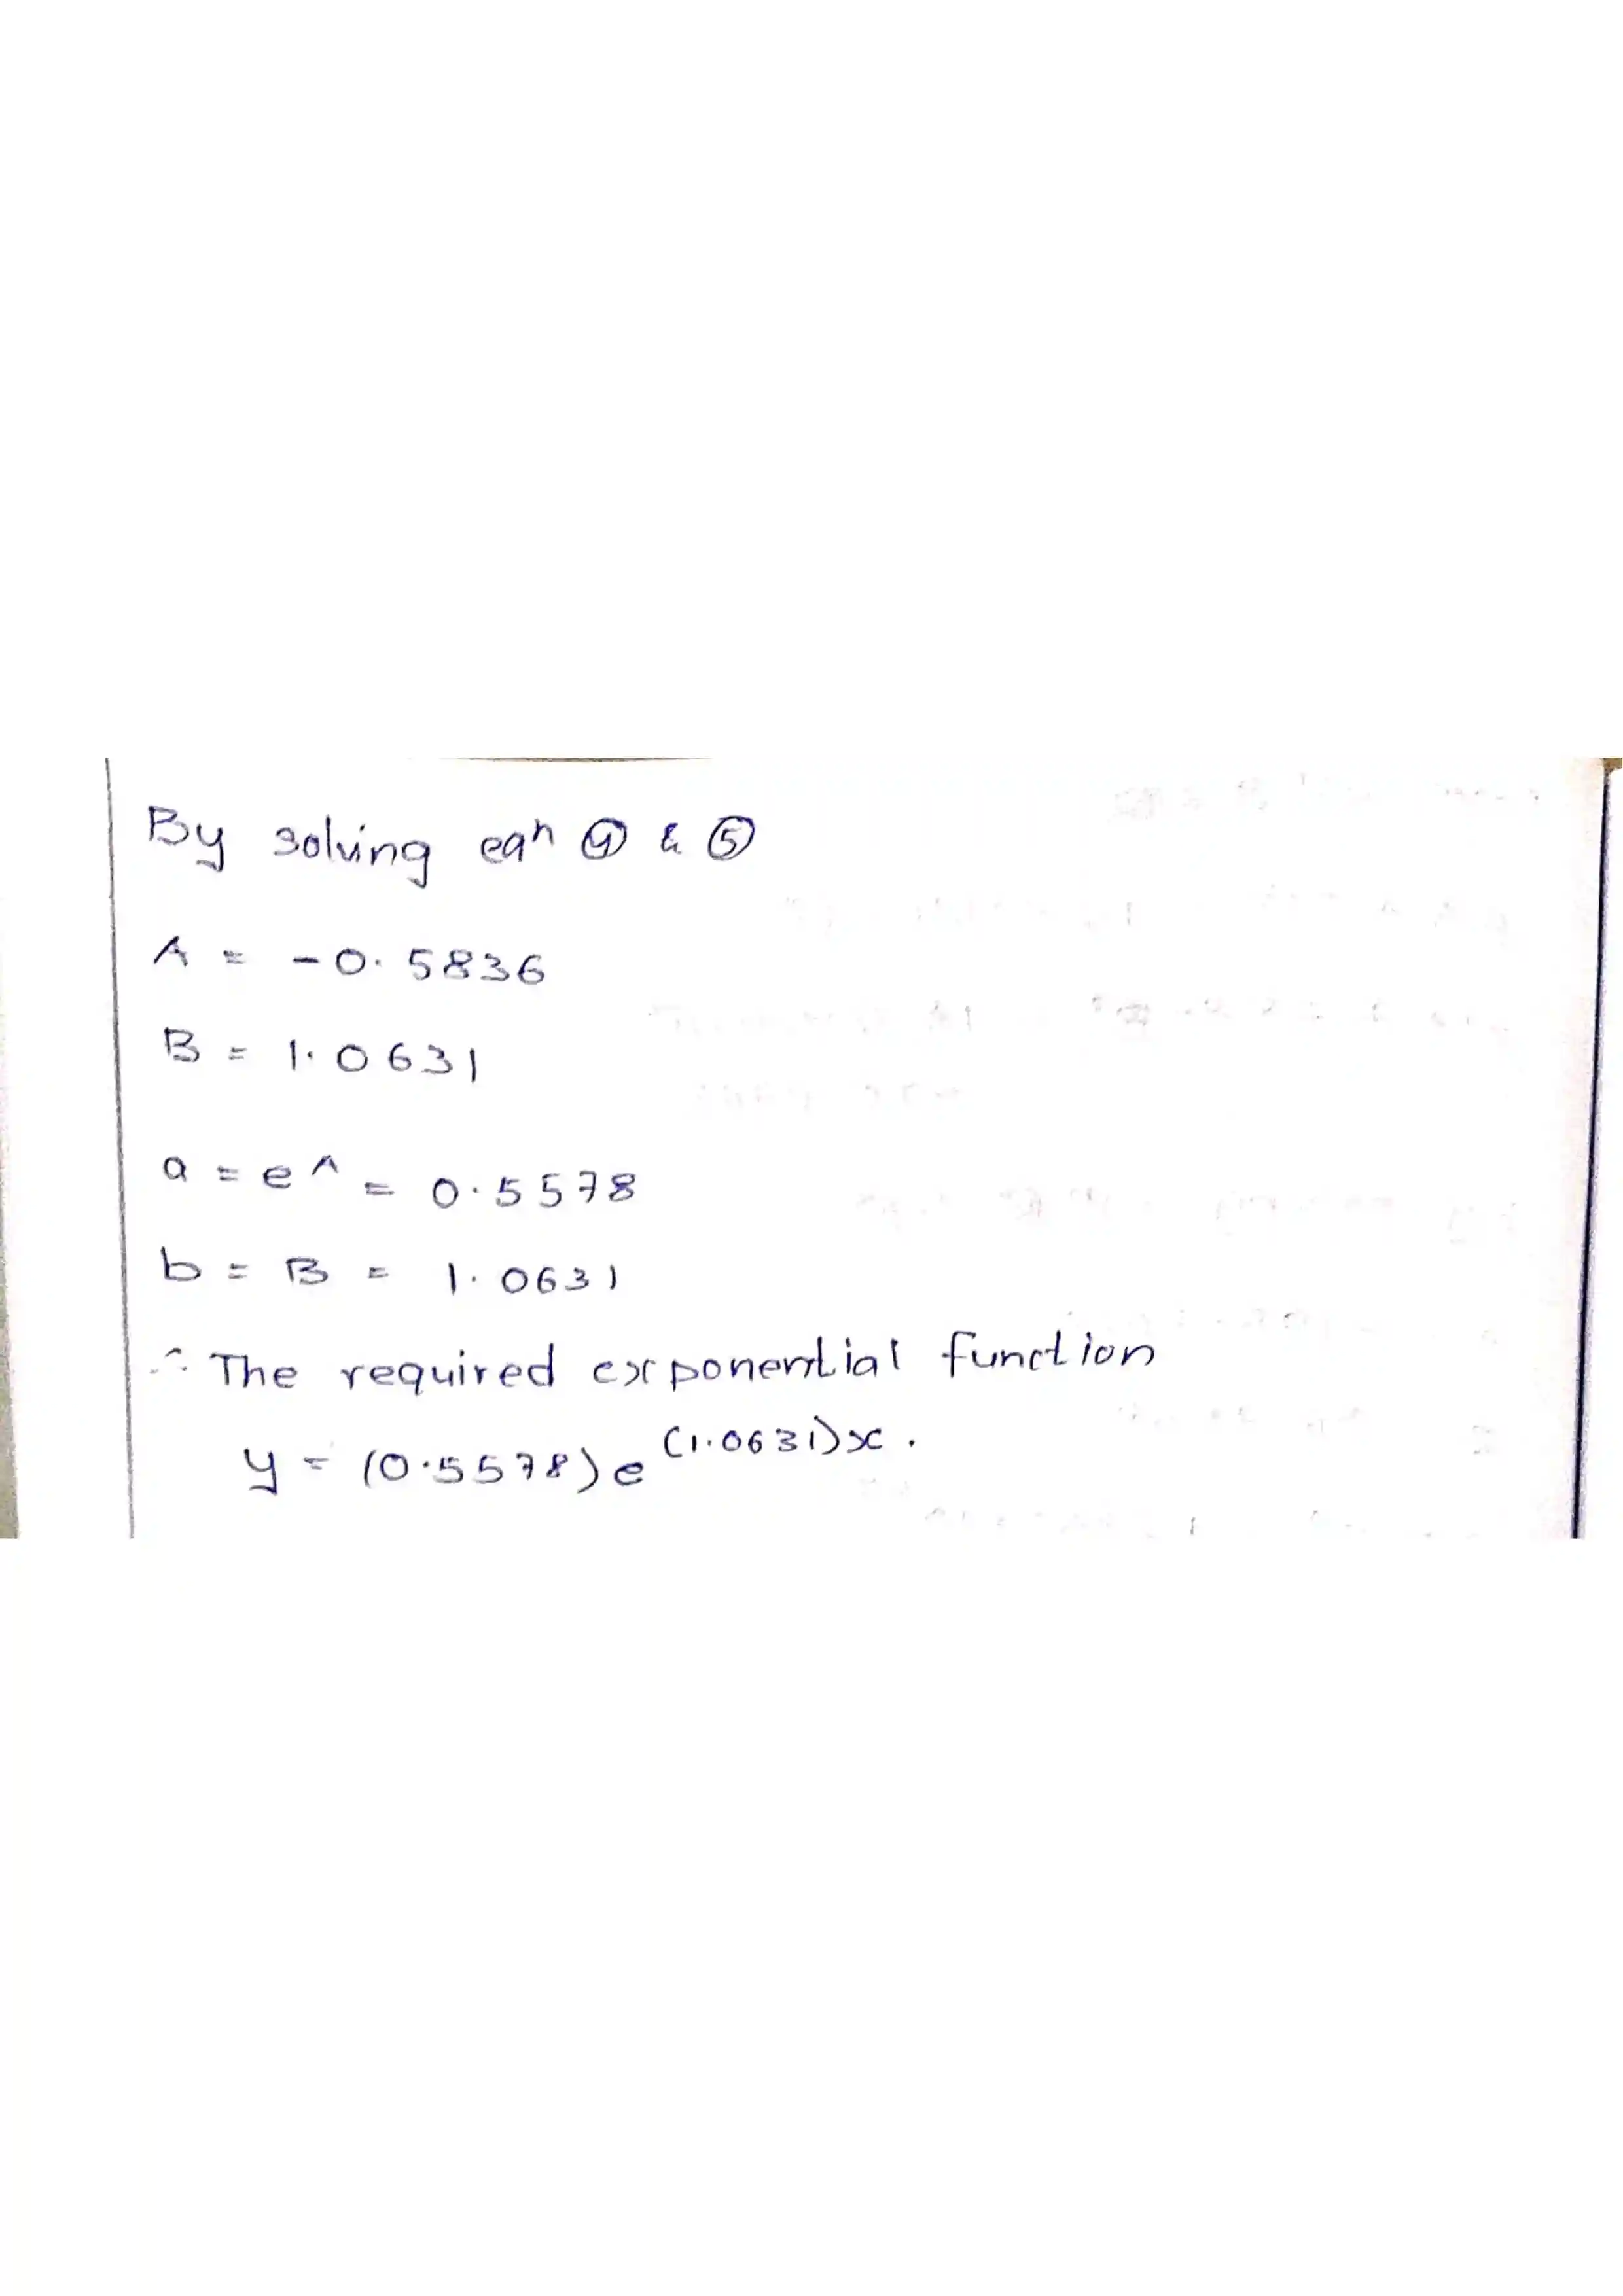 By solving eqn ④ & ⑤
A = -0.5836
B = 1.0631
a = e^A = 0.5578
b = B = 1.0631
∴ The required exponential function
y = (0.5578)e^(1.0631)x.